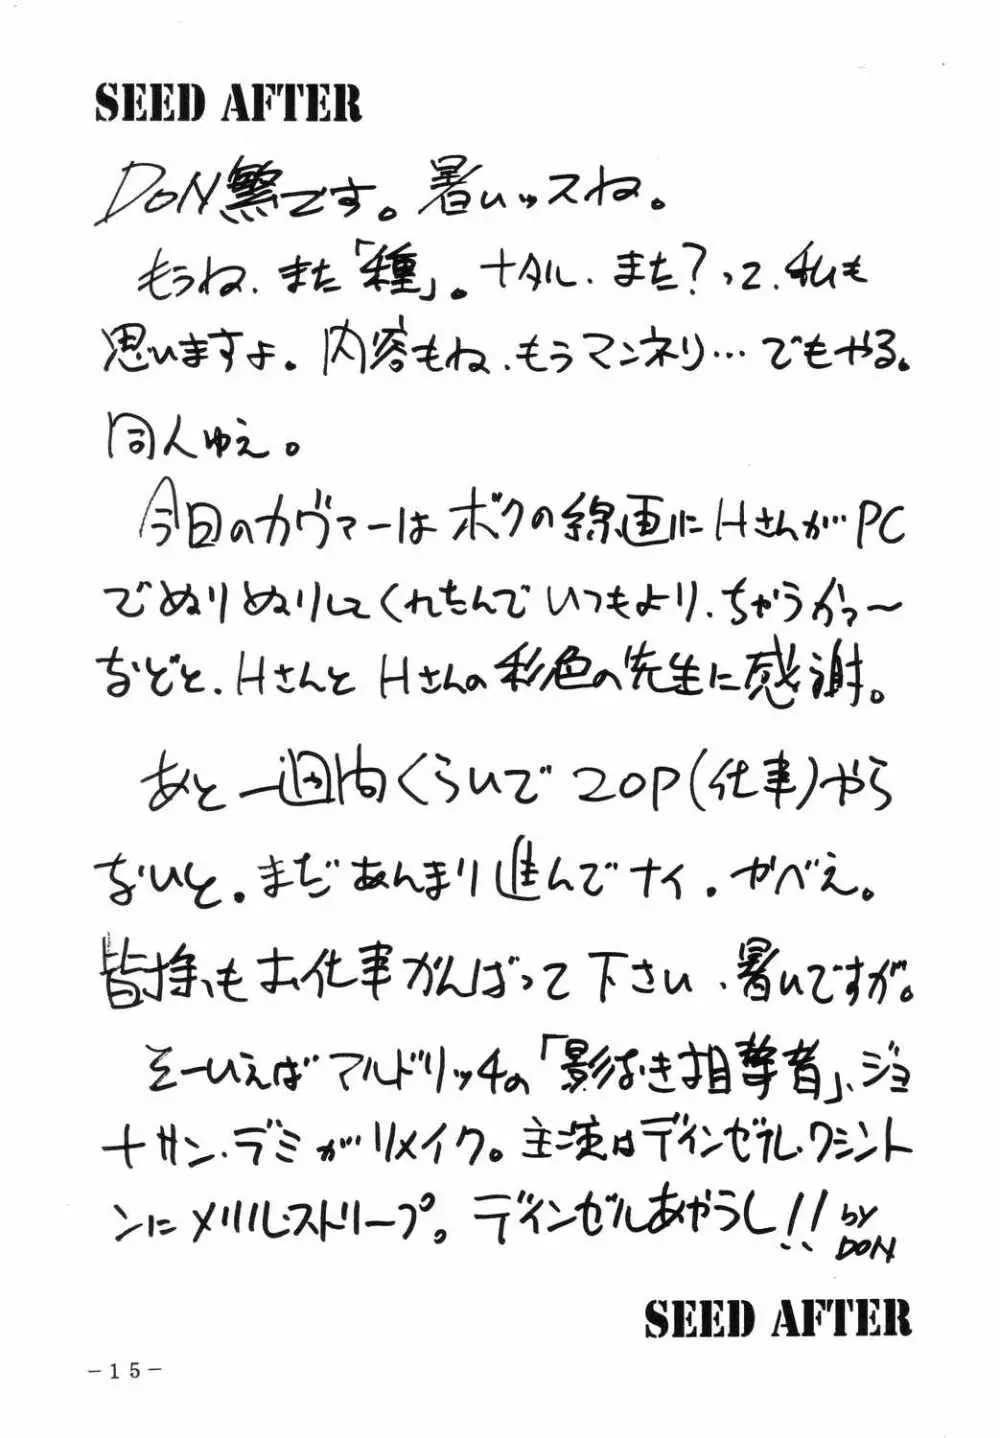 SEED AFTER
DON繁です。暑いッスね。
もうね、また「種」。ナタル、また？って、私も
思いますよ。内容もね、もうマンネリ…でもやる。
同人ゆえ。
今回のカヴァーはボクの線画にHさんが…PC
でぬりぬりしてくれたんでいつもより、ちがうかァ〜
などと、HさんとHさんの彩色の先生に感謝。
あと一週間くらいで20P(仕事)やら
ないと。まだあんまり進んでナイ。がべえ。
皆様もお仕事がんばって下さい、暑いですが。
そーいえばマルドリッチの「影なき狙撃者」、ジョ
ナサン・デミがリメイク。主演はデインゼル・ワシント
ンにメリル・ストリープ。デインゼルあやうし!! by DON
SEED AFTER
-15-